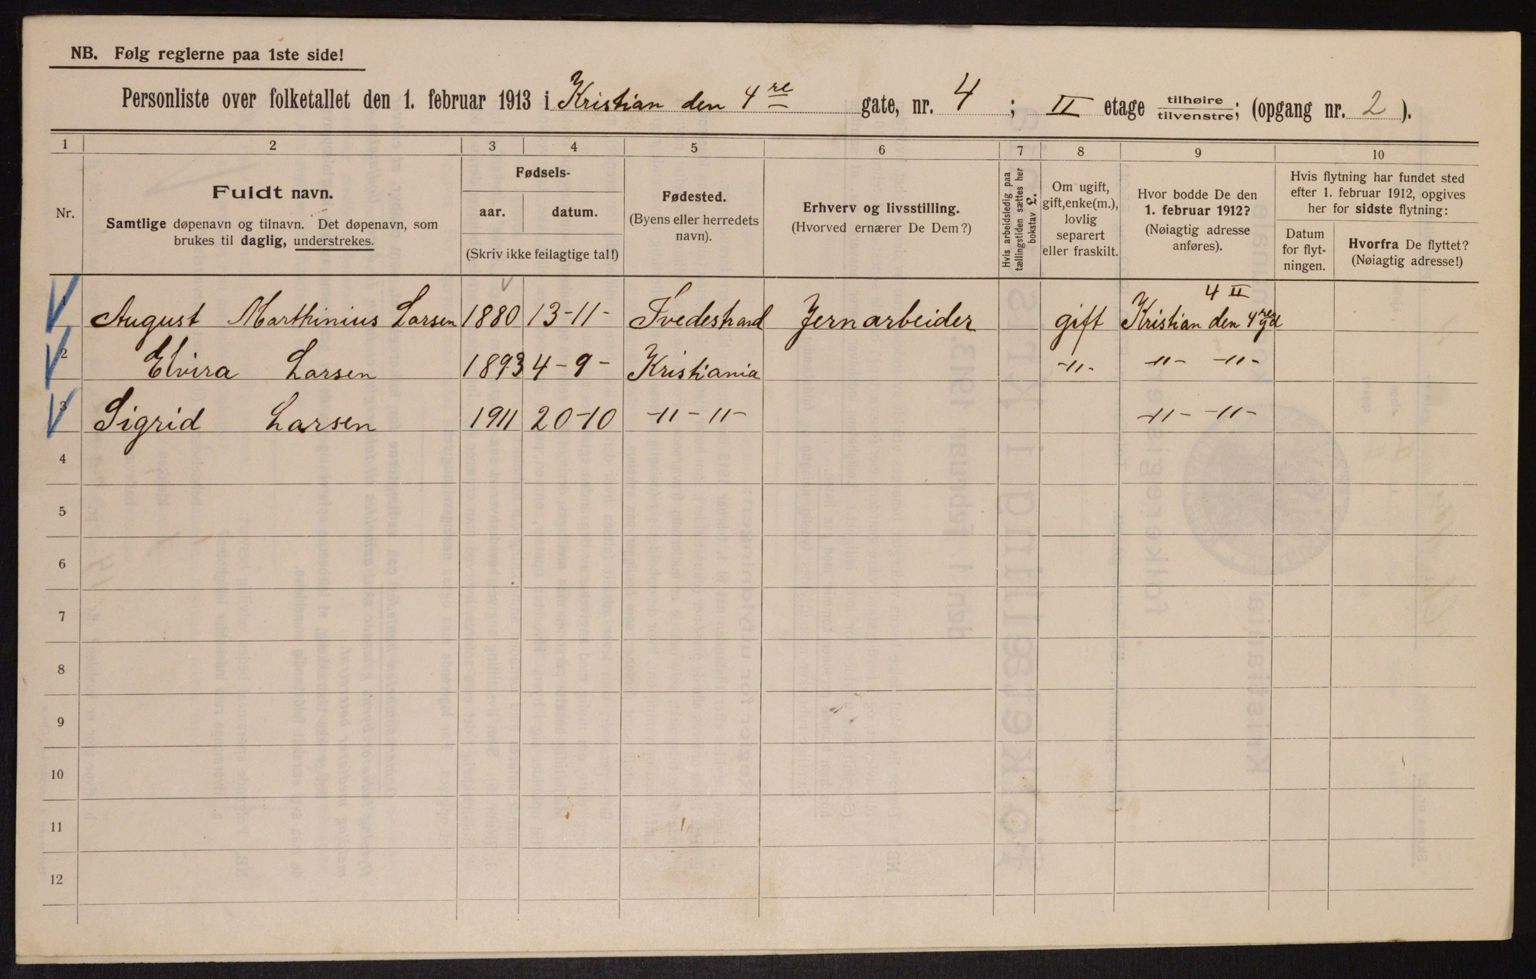 NB. Følg reglerne paa 1ste side!
Personliste over folketallet den 1. februar 1913 i Kristian den 4re gate, nr. 4 ; II etage tilhøire/tilvenstre; (opgang nr. 2 ).
1 2 3 4 5 6 7 8 9 10
Nr.
Fuldt navn.
Samtlige døpenavn og tilnavn. Det døpenavn, som
brukes til daglig, understrekes.
Fødsels-
aar. datum.
(Skriv ikke feilagtige tal!)
Fødested.
(Byens eller herredets
navn).
Erhverv og livsstilling.
(Hvorved ernærer De Dem?)
Hvis arbeidsledig paa
tællingstiden sættes her
bokstav £.
Om ugift,
gift, enke(m.),
lovlig
separert
eller fraskilt.
Hvor bodde De den
1. februar 1912?
(Nøiagtig adresse
anføres).
Hvis flytning har fundet sted
efter 1. februar 1912, opgives
her for sidste flytning:
Datum
for flyt-
ningen.
Hvorfra De flyttet?
(Nøiagtig adresse!)
4 II
1 August Marthinius Larsen 1880 13-11- Tvedestrand Jernarbeider gift Kristian den 4res gd
2 Elvira Larsen 1893 4-9- Kristiania -11- -11- -11-
3 Sigrid Larsen 1911 20-10 -11-11- -11- -11-
4
5
6
7
8
9
10
11
12